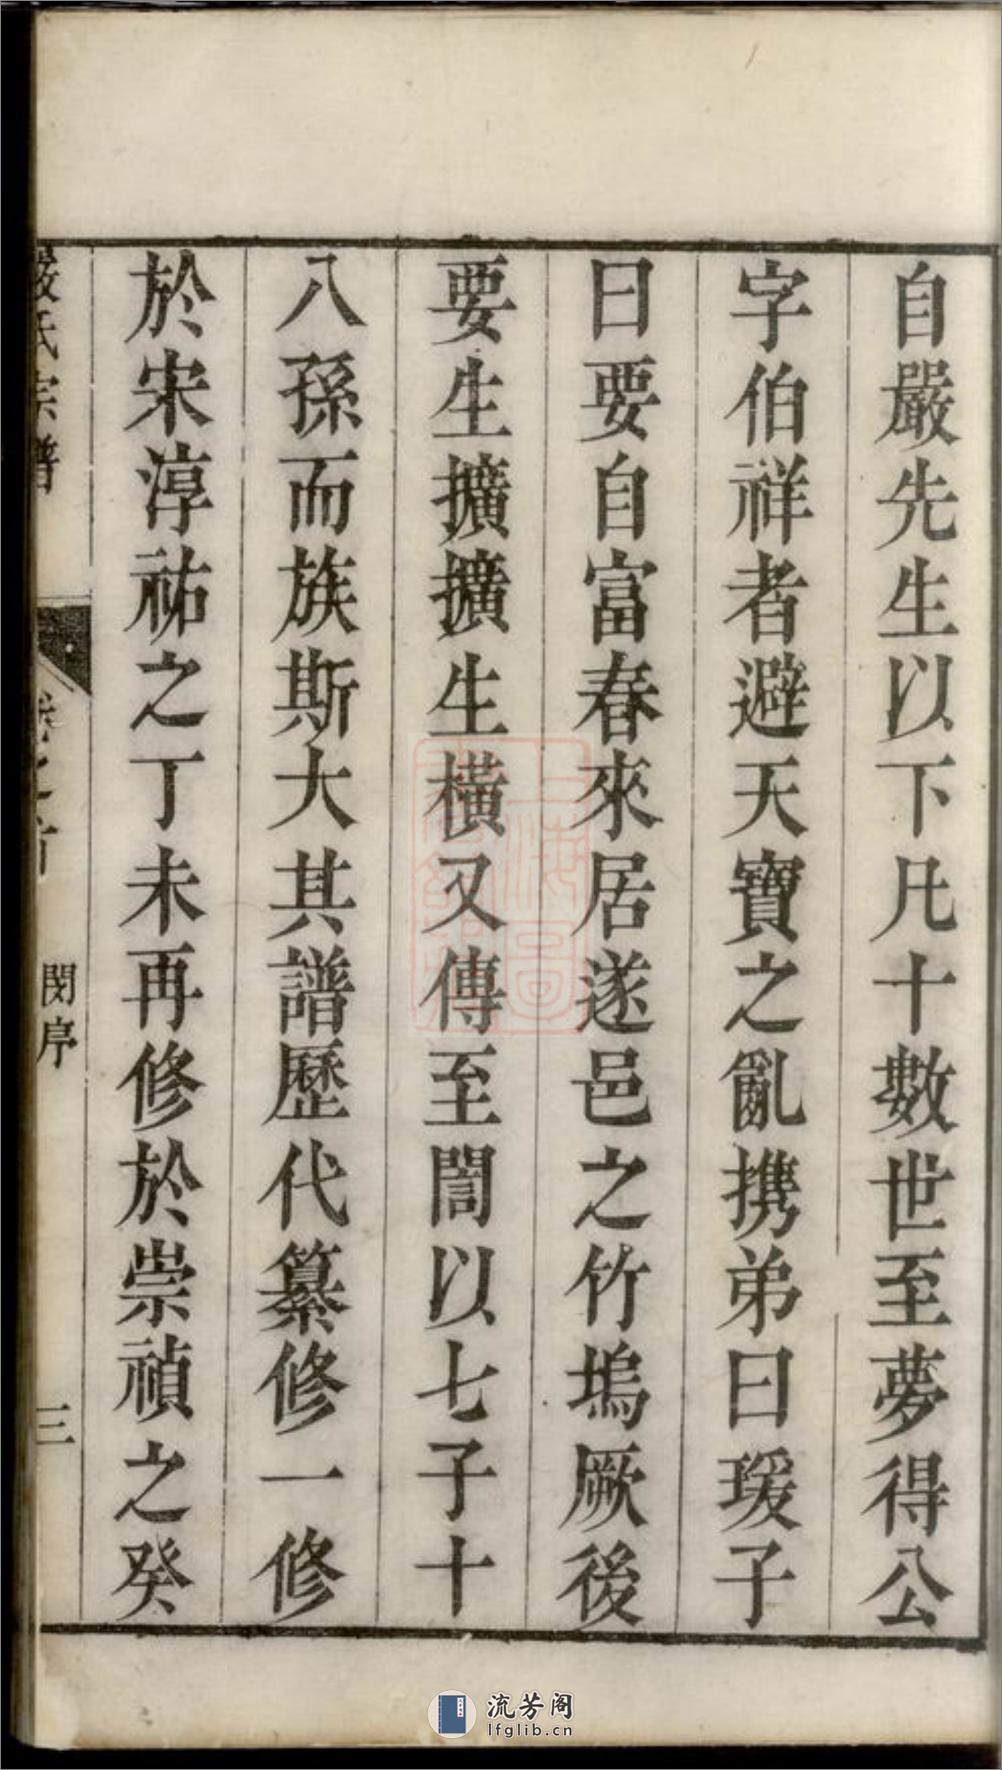 自嚴先生以下凡十數世至夢得公
字伯祥者避天寶之亂携弟曰瑗子
曰要自富春來居遂邑之竹塢厥後
要生擴擴生橫又傳至誾以七子十
八孫而族斯大其譜歷代纂修一修
於宋淳祐之丁未再修於崇禎之癸
嚴氏宗譜
卷之首
閔序
三
流芳阁
lfglib.cn